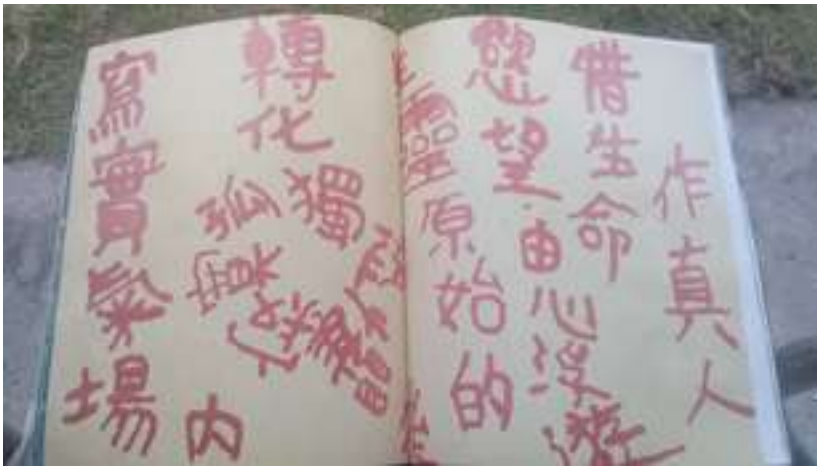 作真人
惜生命
慾望由心沒遊
靈原始的
轉化
獨
孤
寞
寫實氣場
内